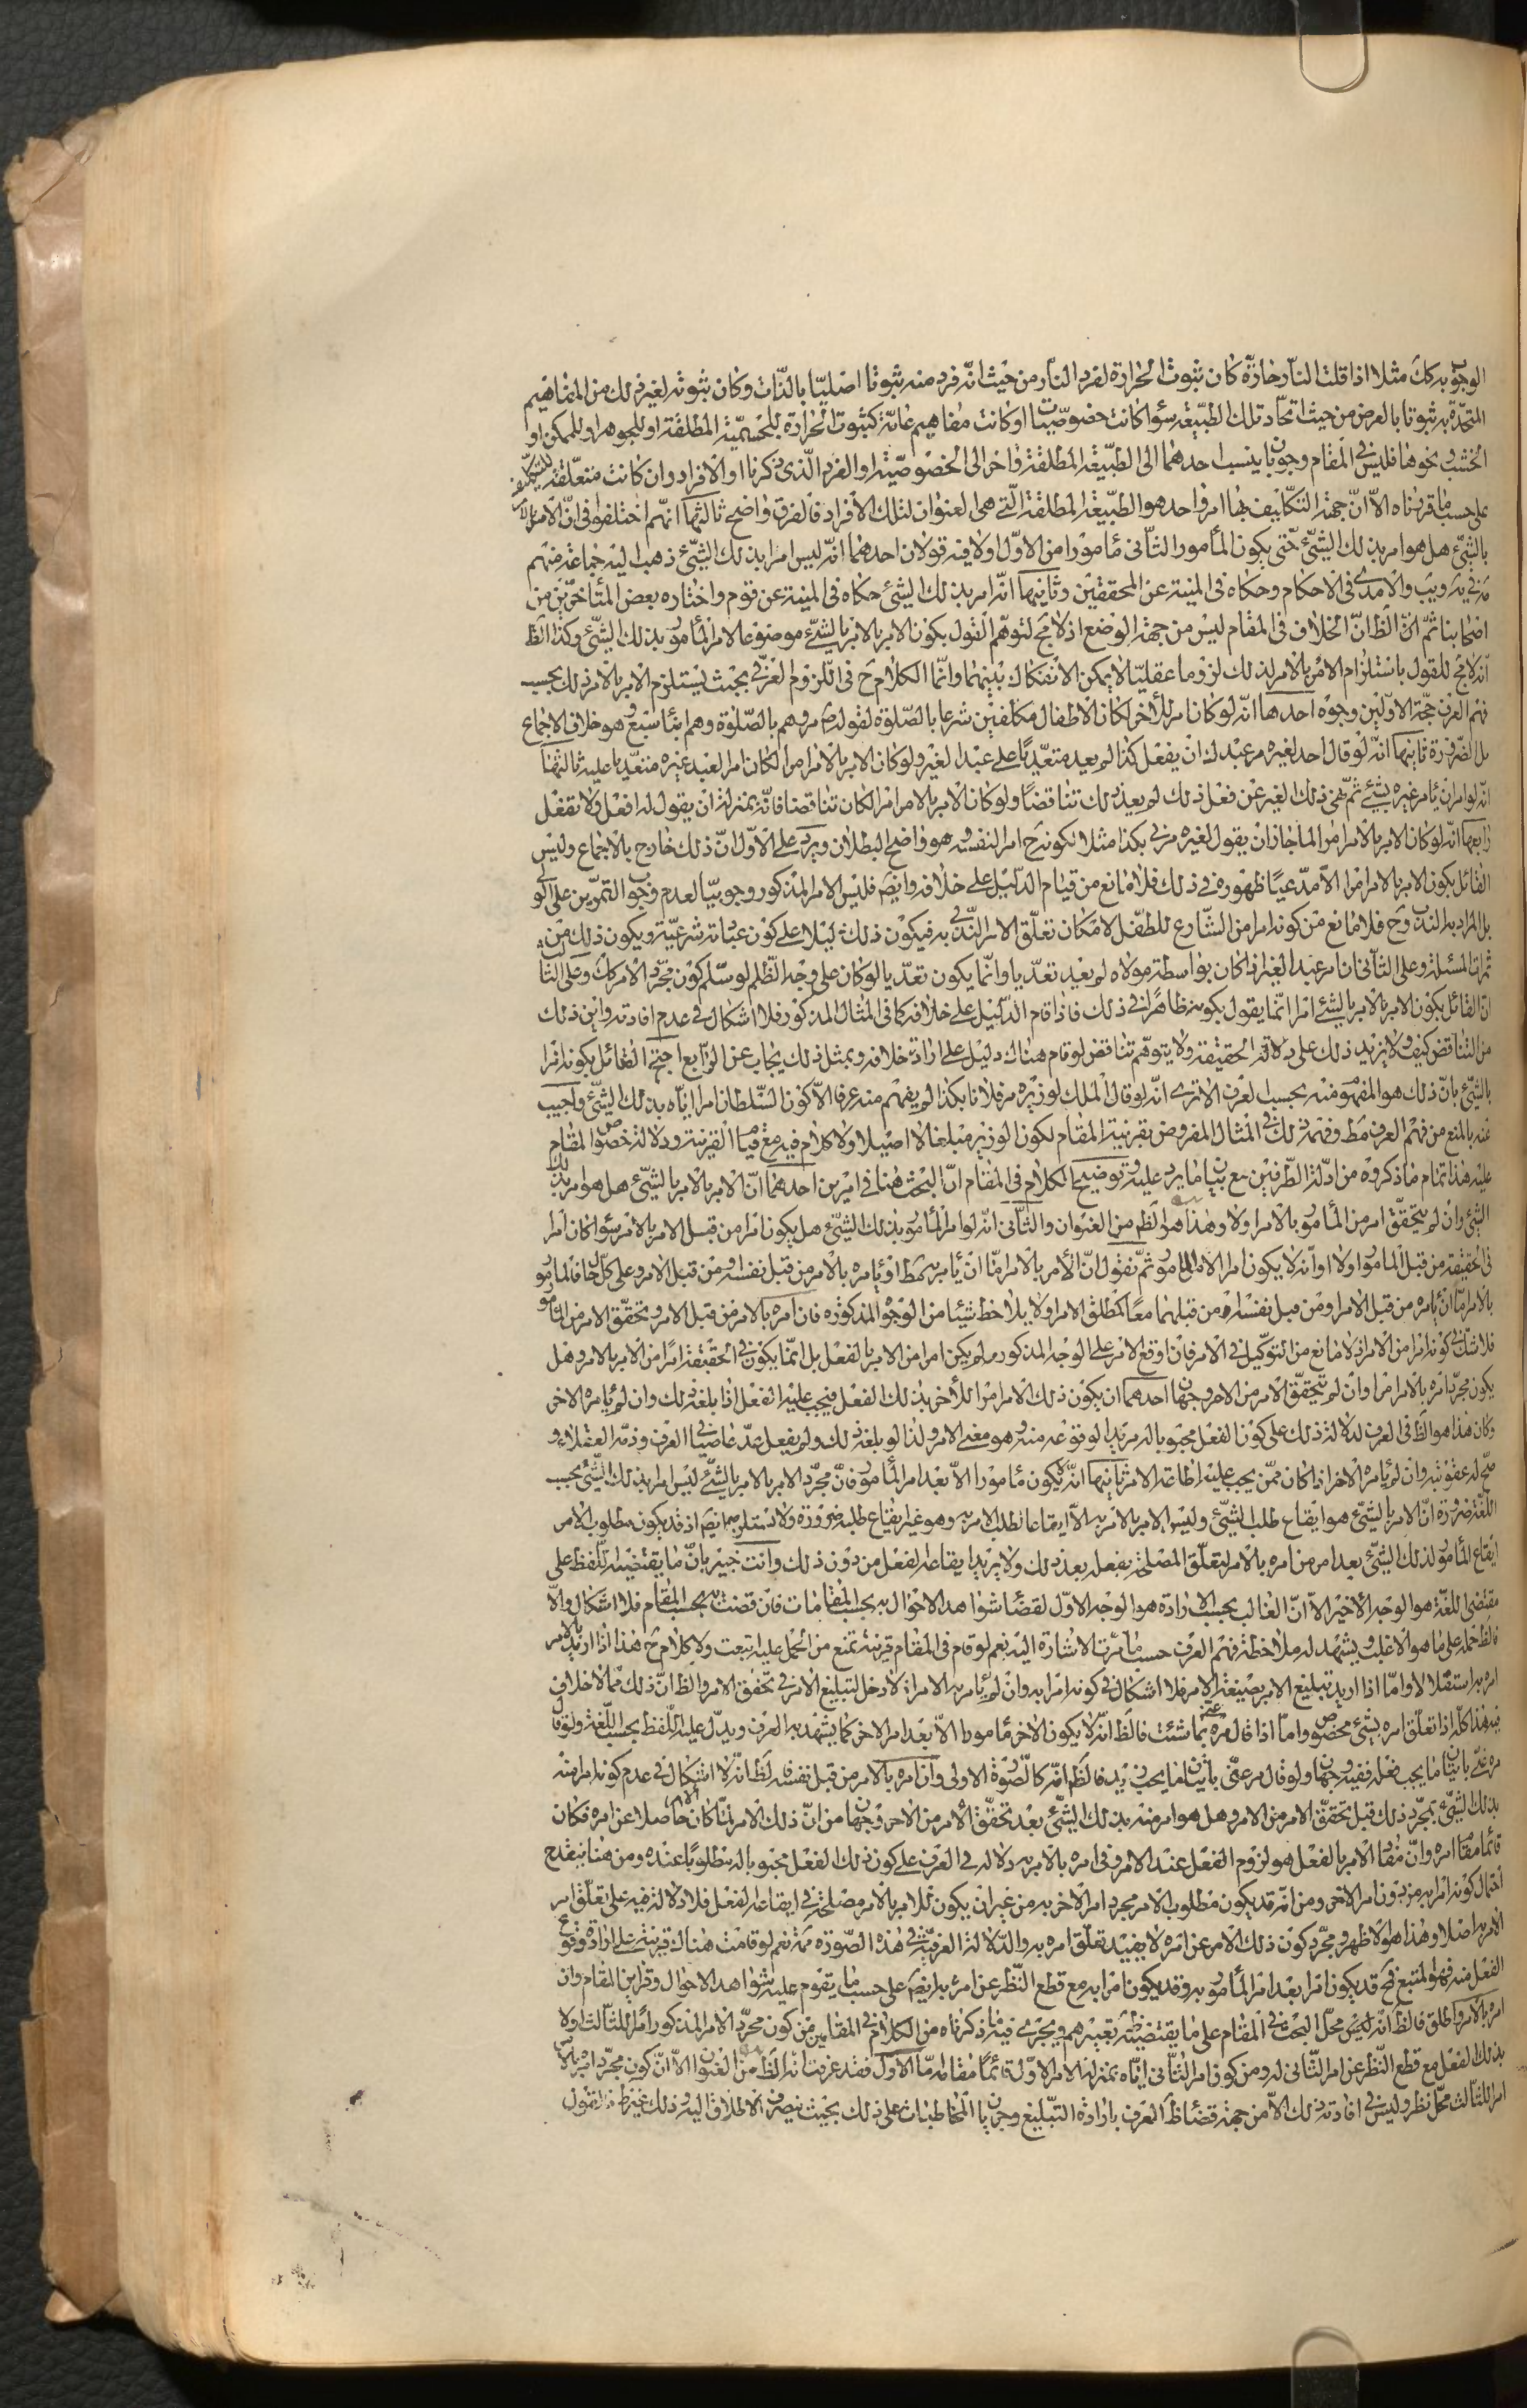 الوجوب به كك مثلا اذا قلت النار حارّة كان ثبوت الحرارة لفرد النار من حيث انّه فرد منه ثبوتا اصليّا بالذّات وكان ثبوته لغير ذلك من المفاهيم
المتحدة به ثبوتا بالعرض من حيث اتحاد تلك الطبيعة سؤا كانت خصوصيّات او كانت مفاهيم عامّة كثبوت الحرارة للجسميّة المطلقة او للجوهر او للممكن او
الخشب ونحوها فليس فى المقام وجوبان ينسب احدهما الى الطبيعة المطلقة واخر الى الخصوصيّة او الفرد الّذى ذكرنا او الافراد وان كانت متعلّقة للتكليف
على حسب ما قررناه الاّ انّ جهة التكليف بها امر واحد هو الطبيعة المطلقة الّتى هى العنوان لتلك الافراد فالفرق واضح ثالثها انّهم اختلفوا فى انّ الامر بالامر
بالشئ هل هو امر بذلك الشئ حتى يكون المأمور الثانى مأمورا من الاوّل اولا فيه قولان احدهما انّه ليس امرا بذلك الشئ ذهب اليه جماعة منهم
مة فى يه ويب والامدى فى الاحكام وحكاه فى المنية عن المحققين وثانيها انّه امر بذلك الشئ حكاه فى المنية عن قوم واختاره بعض المتأخرين من
اصحابنا ثمّ انّ الظ انّ الخلاف فى المقام ليس من جهة الوضع اذ لا مج لتوهم القول بكون الامر بالامر بالشئ موضوعا لامر المأمور بذلك الشئ وكذا الظ
انّه لا مج للقول باستلزام الامر بالامر لذلك لزوما عقليّا لا يمكن الانفكاك بينهما وانّما الكلام ح فى اللزوم العرفى بحيث يستلزم الامر بالامر ذلك بحسب
فهم العرف حجّة الاوّلين وجوه احدها انّه لو كان امرا للأخر لكان الاطفال مكلفين شرعا بالصّلوة لقوله ص مروهم بالصّلوة وهم ابناء سبع وهو خلاف الاجماع
بل الضّرورة ثانيها انّه لو قال احد لغيره مر عبدك ان يفعل كذا لم يعد متعدّيا على عبد الغير ولو كان الامر بالامر امرا لكان امر العبد غيره متعدّيا عليه ثالثها
انّه لو امر ان يأمر غيره بشئ ثمّ نهى ذلك الغير عن فعل ذلك لم يعد ذلك تناقضا ولو كان الامر بالامر امرا لكان تناقضا فانّه بمنزلة ان يقول له افعل ولا تفعل
رابعها انّه لو كان الامر بالامر امرا لما جاز ان يقول لغيره مرنى بكذا مثلا لكونه ح امرا لنفسه وهو واضح البطلان ويرد على الاوّل انّ ذلك خارج بالاجماع وليس
القائل بكون الامر بالامر امرا الاّ مدّعيا ظهوره فى ذلك فلا مانع من قيام الدّليل على خلافه وايضا فليس الامر المذكور وجوبيّا لعدم وجوب التمرين على الولى
بل المراد به الندب وح فلا مانع من كونه امرا من الشّارع للطّفل لامكان تعلّق الامر النّدبى به فيكون ذلك دليلا على كون عباداته شرعيّة ويكون ذلك من
ثمرات المسئلة وعلى الثانى انّ امر عبد الغير اذا كان بواسطة مولاه لم يعد تعدّيا وانّما يكون تعدّيا لو كان على وجه الظّلم لو سلّم كون مجرّد الامر كك وعلى الثالث
انّ القائل بكون الامر بالامر بالشئ امرا انّما يقول بكونه ظاهرا فى ذلك فاذا قام الدّليل على خلافه كما فى المثال المذكور فلا اشكال فى عدم افادته واين ذلك
من التناقض كيف ولا يزيد ذلك على دلالة الحقيقة ولا يتوهّم تناقض لو قام هناك دليل على ارادة خلافه وبمثل ذلك يجاب عن الرّابع احتج القائل بكونه امرا
بالشئ بانّ ذلك هو المفهوم منه بحسب العرف الا ترى انّه لو قال الملك لوزيره مر فلانا بكذا لم يفهم منه عرفا الاّ كون السّلطان امرا ايّاه بذلك الشئ واجيب
عنه بالمنع من فهم العرف مط وفهمه ذلك فى المثال المفروض بقرينة المقام لكون الوزير مبلّغا لا اصيلا ولا كلام فيه مع قيام القرينة ودلالة خصوص المقام
عليه هذا تمام ما ذكروه من ادلّة الطّرفين مع بيان ما يرد عليه وتوضيح الكلام فى المقام انّ البحث هنا فى امرين احدهما انّ الامر بالامر بالشئ هل هو امر بذلك
الشئ وان لم يتحقّق امر من المأمور بالامر اولا وهذا هو الظ من العنوان والثّانى انّه لو امر المأمور بذلك الشئ هل يكون امرا من قبل الامر بالامر سؤا كان امرا
فى الحقيقة من قبل المأمور اولا او انّه لا يكون امرا الا للمأمور ثمّ نقول انّ الأمر بالامر امّا ان يأمر به مط او يأمره بالامر من قبل نفسه او من قبل الامر وعلى كلّ حال فالمأمور
بالامر امّا ان يأمره من قبل الامر او من قبل نفسه او من قبلهما معا او مطلق الامر ولا يلاحظ شيئا من الوجوه المذكوره فان امره بالامر من قبل الامر وتحقّق الامر من المأمور
فلا شك فى كونه امرا من الامر اذ لا مانع من التوكيل فى الامر فان اوقع الامر على الوجه المذكور لم يكن امرا من الامر بالفعل بل انّما يكون فى الحقيقة امرا من الامر بالامر وهل
يكون مجرّد امره بالامر امرا وان لم يتحقّق الامر من الاخر وجهان احدهما ان يكون ذلك الامر امرا للأخر بذلك الفعل فيجب عليه الفعل اذا بلغه ذلك وان لم يأمره الاخر
وكان هذا هو الظ فى العرف لدلالة ذلك على كون الفعل محبوبا له مريدا لوقوعه منه وهو معنى الامر ولذا لو بلغه ذلك ولم يفعل عدّ عاصيا فى العرف وذمّه العقلاء و
صحّ له عقوبته وان لم يأمره الاخر اذا كان ممّن يجب عليه اطاعة الامر ثانيها انّه لا يكون مأمورا الاّ بعد امر المأمور فانّ مجرّد الامر بالامر بالشئ ليس امرا بذلك الشئ بحسب
اللّغة ضرورة انّ الامر بالشئ هو ايقاع طلب الشئ وليس الامر بالامر به الاّ ايقاعا لطلب الامر به وهو غير ايقاع طلبه ضرورة ولا يستلزمه ايضا اذ قد يكون مطلوب الامر
ايقاع المأمور لذلك الشئ بعد امر من امره بالامر لتعلّق المصلحة بفعله بعد ذلك ولا يريد ايقاعه الفعل من دون ذلك وانت خبير بانّ ما يقتضيه اللّفظ على
مقتضى اللغة هو الوجه الأخير الاّ انّ الغالب بحسب الارادة هو الوجه الاوّل لقضاء شواهد الاحوال به بحسب المقامات فان قضت به بحسب المقام فلا اشكال والاّ
فالظ حمله على ما هو الاغلب ويشهد له ملاحظة فهم العرف حسب ما مرّت الاشارة اليه نعم لو قام فى المقام قرينة تمنع من الحمل عليه اتبعت ولا كلام ح هذا اذا اريد بالامر
امره به استقلالا وامّا اذا اريد تبليغ الامر بصيغة الامر فلا اشكال فى كونه امرا به وان لم يأمر به الامر اذ لا دخل لتبليغ الامر فى تحقّق الامر والظ انّ ذلك ممّا لا خلاف
فيه هذا كلّه اذا تعلّق امره بشئ مخصوص وامّا اذا قال مره عنى بما شئت فالظ انّه لا يكون الاخر مأمورا الاّ بعد امر الاخر كما يشهد به العرف ويدلّ عليه اللّفظ بحسب اللّغة ولو قال
مره عنى باتيان ما يجب فعله ففيه وجهان ولو قال مر عنّى باتيان ما يحب زيد فالظ انّه كالصّورة الاولى وان امره بالامر من قبل نفسه فالظ انّه لا اشكال فى عدم كونه امرا منه
بذلك الشئ بمجرّد ذلك قبل تحقّق الامر من الامر وهل هو امر منه بذلك الشئ بعد تحقّق الأمر من الاخر وجهان من انّ ذلك الامر لمّا كان حاصلا عن امره فكان
قائما مقام امره وانّ مفاد الامر بالفعل هو لزوم الفعل عند الامر وفى امره بالامر به دلالة فى العرف على كون ذلك الفعل محبوبا له مطلوبا عنده ومن هنا ينقدح
احتمال كونه امرا به من دون امر الاخر ومن انّه قد يكون مطلوب الامر مجرد امر الاخر به من غير ان يكون للامر بالامر مصلحة فى ايقاعه الفعل فلا دلالة فيه على تعلّق امر
الامر به اصلا وهذا هو الاظهر ومجرّد كون ذلك الامر عن امره لا يفيد تعلّق امره به والدّلالة العرفيّة فى هذه الصّورة مم نعم لو قامت هناك قرينة على ارادة وقوع
الفعل منه فهو المتبع فح قد يكون امرا بعد امر المأمور به وقد يكون امرا به مع قطع النّظر عن امره به ايضا على حسب ما يقوم عليه شواهد الاحوال وقراين المقام وان
امره بالامر واطلق فالظ انّه ليس محلّ البحث فى المقام على ما يقتضيه ظ تعبيرهم ويجرى فيه ما ذكرناه من الكلام فى المقامين من كون مجرّد الامر المذكور امرا للثالث اولا
بذلك الفعل مع قطع النّظر عن امر الثّانى له ومن كون امر الثّانى ايّاه بمنزلة الامر الاوّل قائما مقامه امّا الاوّل فقد عرفت انّه الظ من العنوان الاّ انّ كون مجرّد امره بالامر
امرا للثالث محلّ نظر وليس فى افادته ذلك الاّ من جهة قضاء ظ العرف بارادة التبليغ وجريان المخاطبات على ذلك بحيث ينصرف الاطلاق اليه وذلك غير ظ